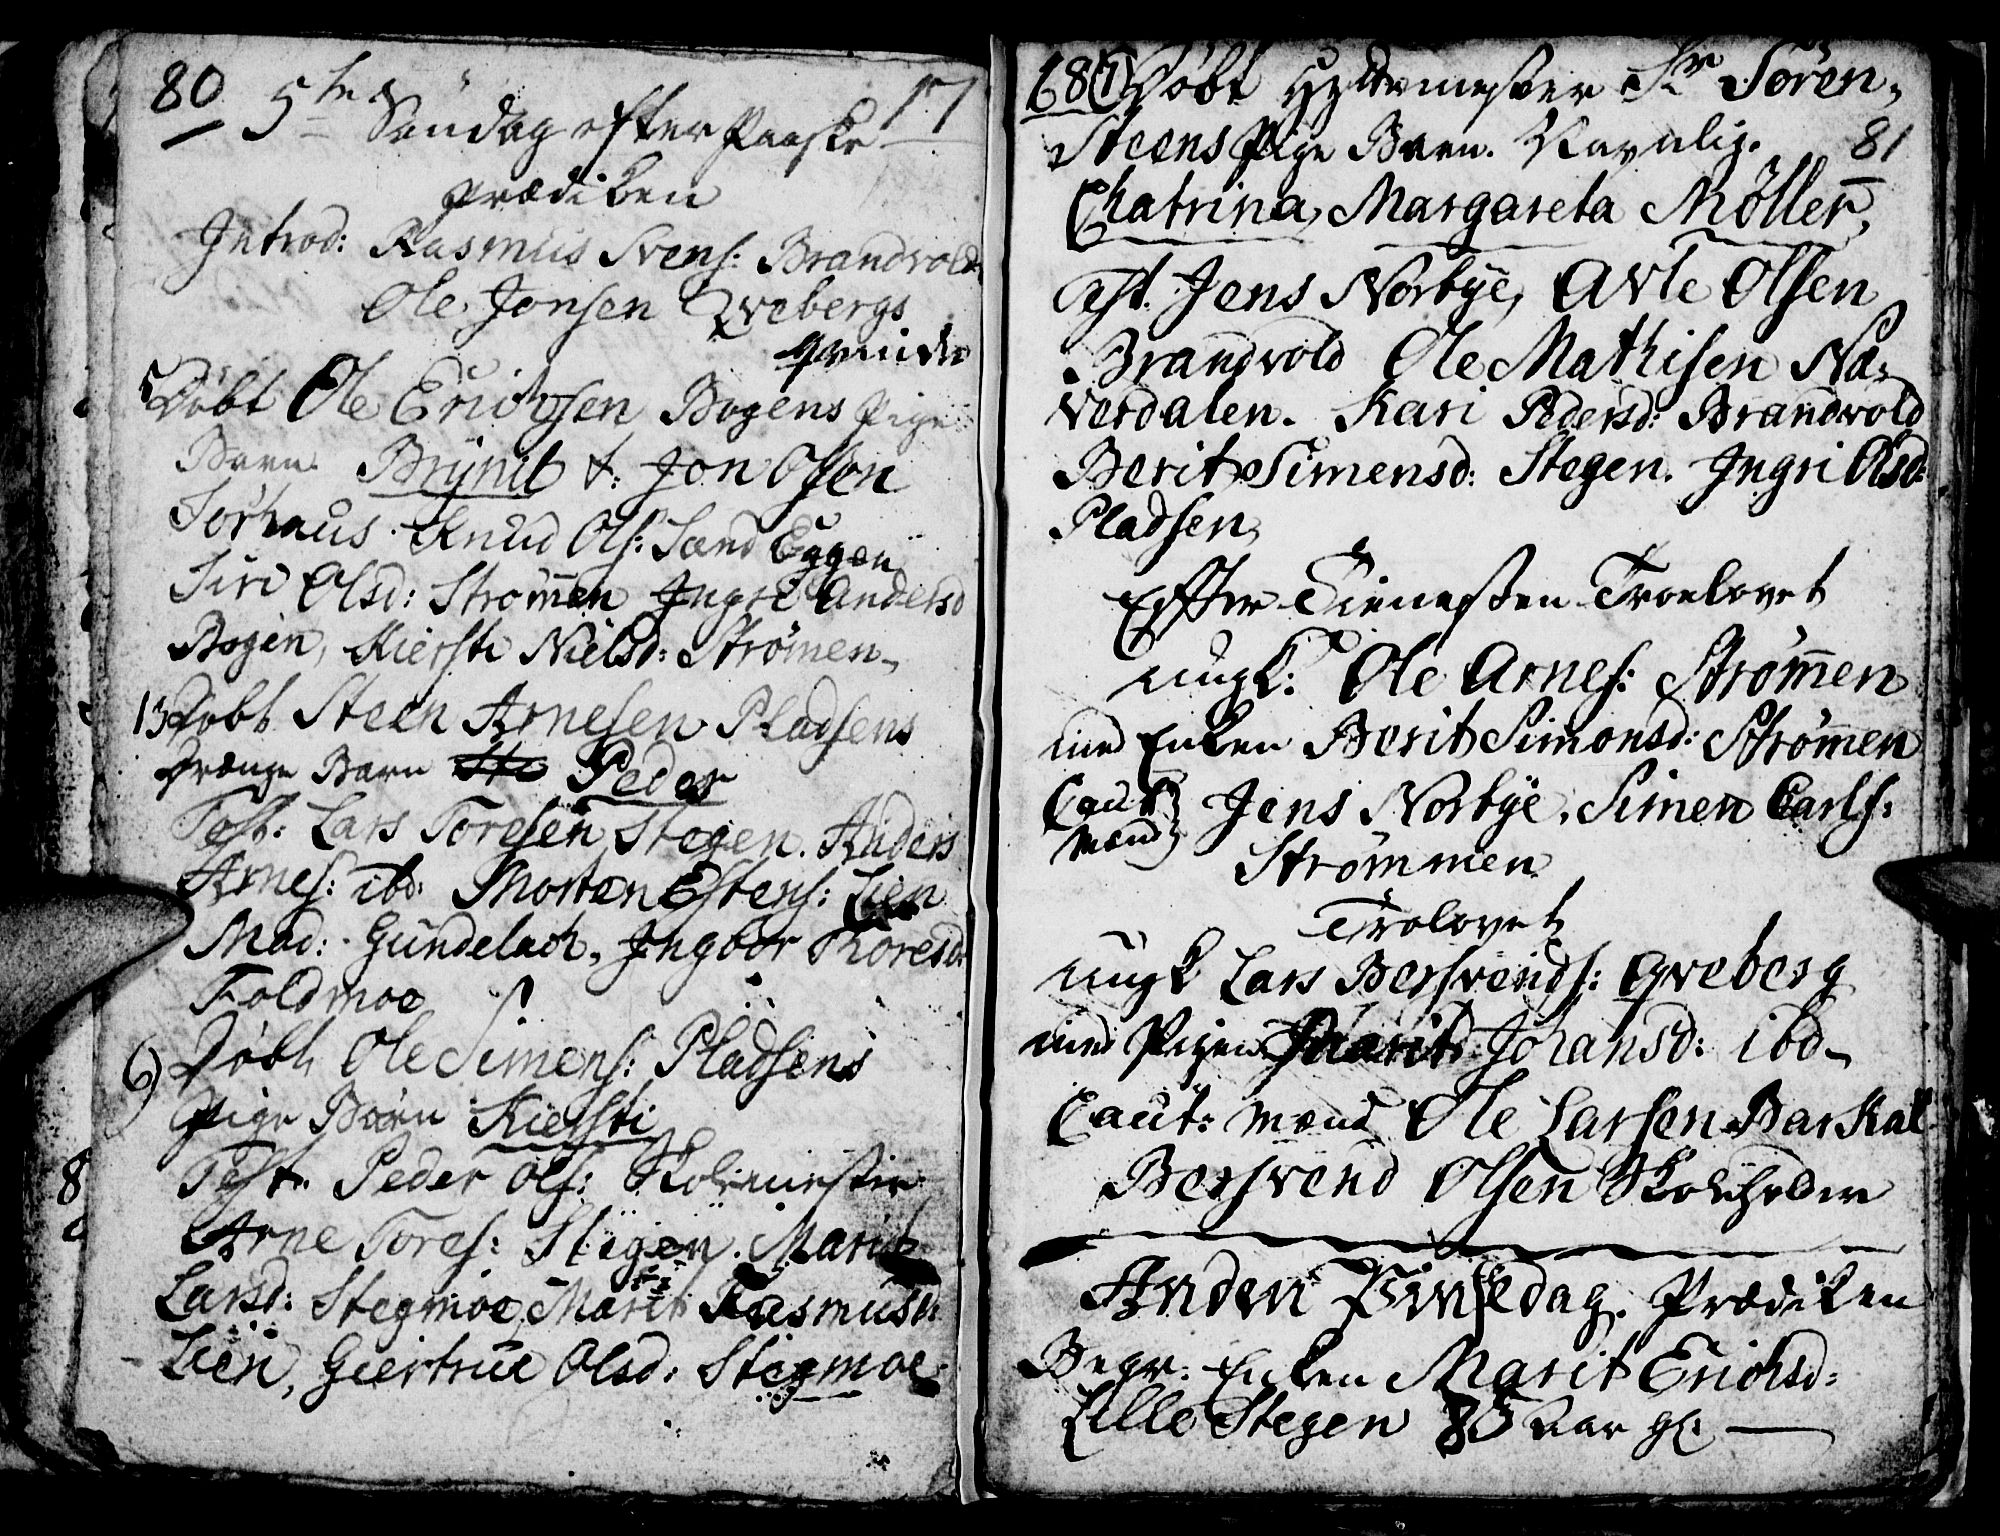 80 17
5te Søndag efter Paaske
Prædiken
Introd: Rasmus Svens: Brandvold
Ole Jonsen Qvebergs
Qvinder
5 Døbt Ole Erichsen Bogens Pige
Barn Brÿnit T: Jon Olsen
Sørhaus. Knud Ols: Sand Eggen
Siri Olsd: Strømen Ingri Andersd
Bogen, Kiersti Nielsd: Strømen
13 Døbt Steen Arnesen Pladsens
Drænge Barn Peder
Test: Lars Toresen Stegen. Anders
Arnes: ibd: Morten Estens: Lien
Mad: Gundelach, Ingbor Thoresd:
Foldmoe
6) Døbt Ole Simens: Pladsens
Pige Barn Kiersti
Test. Peder Ols: Skolemester
Arne Tores: Stigen. Marit
Larsd: Stegmoe, Marit Rasmusd:
Lien, Giertrue Olsd: Stegmoe
8
687 Døbt Hyttemester Sr Sören
Steens Pige Barn. Navnlig. 81
Chatrina, Margareta Möller,
Test. Jens Norbÿe, Avle Olsen
Brandvold Ole Mathisen Na-
verdalen. Kari Pedersd: Brandvold
Berit Simensd: Stegen. Ingri Olsd:
Pladsen
Effter Tienesten Troelovet
ungk: Ole Arnes: Strømen
med Enken Berit Simonsd: Strømen
Caut: Mænd Jens Norbÿe, Simen Carls:
Strømmen
Trolovet
ungk Lars Bersvends: Qveberg
med Pigen Marit Johansd: ibd
Caut: Mænd Ole Larsen Barkal
Bersvend Olsen Skoleholder
Anden Pinsedag. Prædiken
Begr: Enken Marit Erichsd:
Lille Stegen 83 Aar gl: